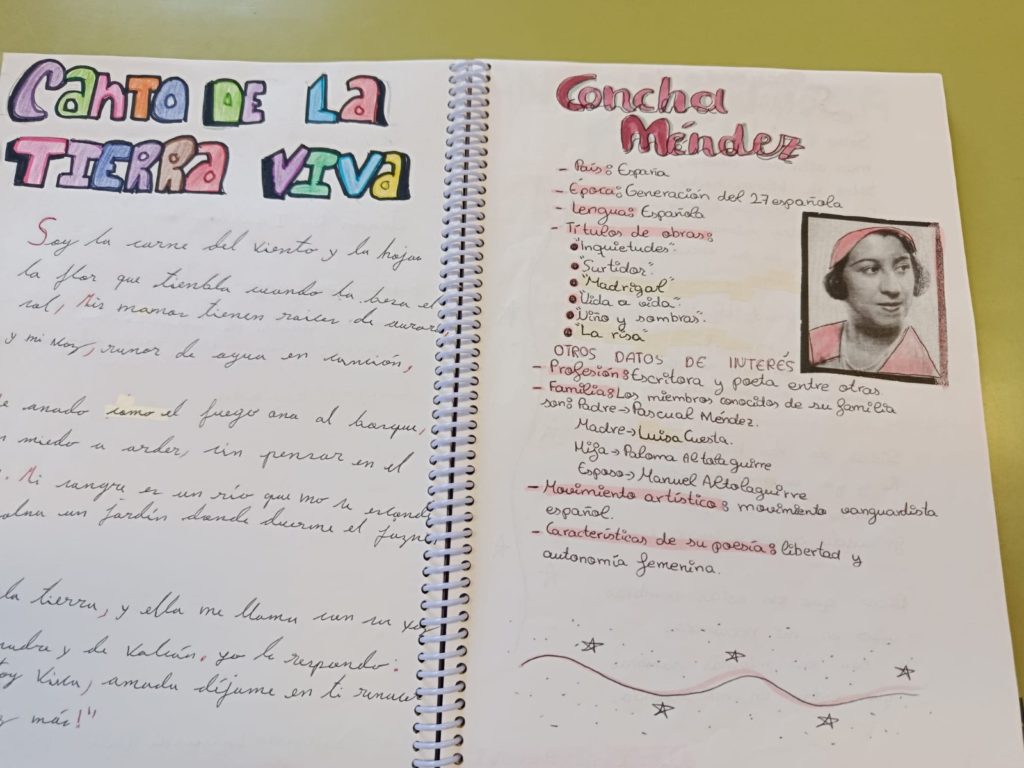 CANTO DE LA
TIERRA VIVA
Soy la carne del viento y la hoja
la flor que tiembla cuando la besa el
sol, Mis manos tienen raices de aurora
y mi voz, rumor de agua en canción,
anado como el fuego ana al bosque,
miedo a arder, sin pensar en el
Mi sangre es un río que no se esconde
un jardín donde duerme el
la tierra, y ella me llama con su voz
madre y de volcán. yo le respondo:
Viva, amada déjame en ti renacer
más!"
Concha
Méndez
- País: España
- Época: Generación del 27 española
- Lengua: Española
- Títulos de obras:
"Inquietudes".
"Surtidor".
"Madrigal"
"Vida a vida".
"Niño y sombras".
"La risa"
OTROS DATOS DE INTERÉS
- Profesión: Escritora y poeta entre otras.
- Familia: Los miembros conocidos de su familia
son: Padre → Pascual Méndez.
Madre → Luisa Cuesta.
Hija → Paloma Altolaguirre
Esposo → Manuel Altolaguirre
- Movimiento artístico: movimiento vanguardista
español.
- Características de su poesía: libertad y
autonomía femenina.